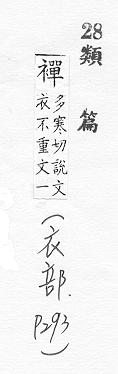 28類篇
襌
多寒切說文
衣不重文一
(衣部. P293)